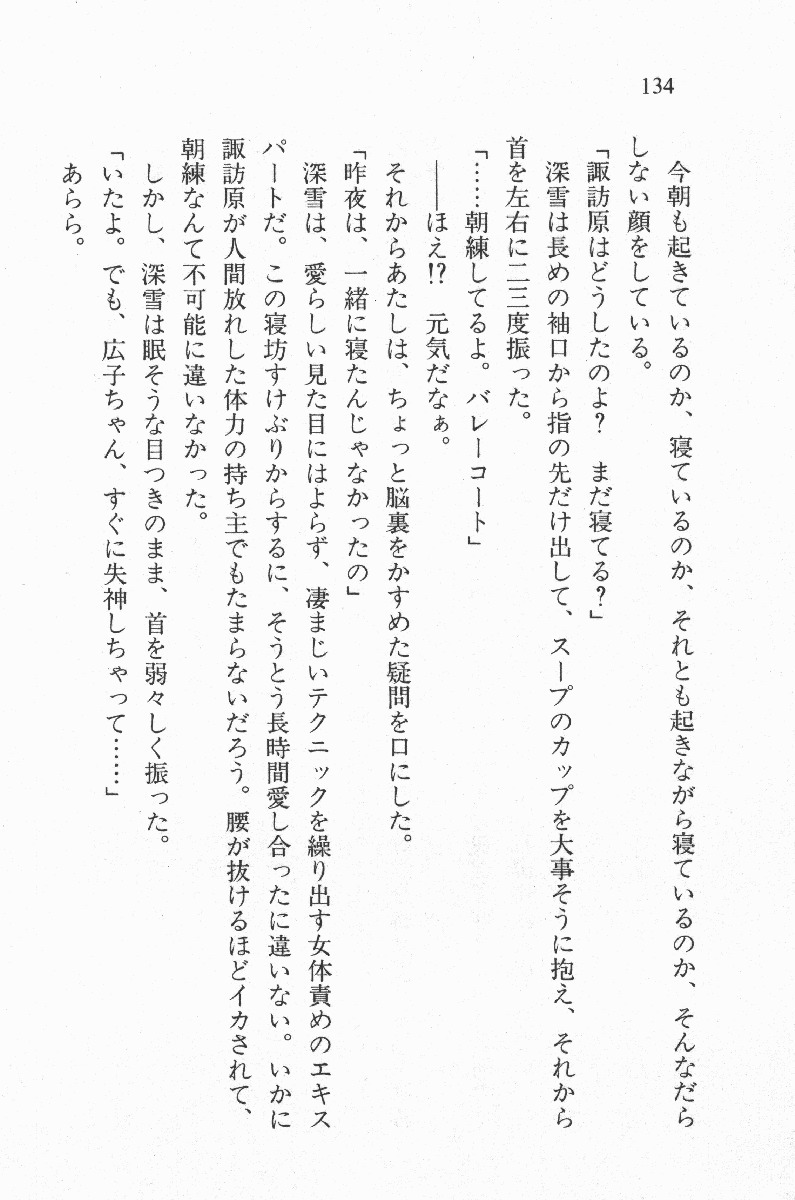 134
今朝も起きているのか、寝ているのか、それとも起きながら寝ているのか、そんなだら
しない顔をしている。
「諏訪原はどうしたのよ？　まだ寝てる？」
深雪は長めの袖口から指の先だけ出して、スープのカップを大事そうに抱え、それから
首を左右に二三度振った。
「……朝練してるよ。バレーコート」
――ほえ!?　元気だなぁ。
それからあたしは、ちょっと脳裏をかすめた疑問を口にした。
「昨夜は、一緒に寝たんじゃなかったの」
深雪は、愛らしい見た目にはよらず、凄まじいテクニックを繰り出す女体責めのエキス
パートだ。この寝坊すけぶりからするに、そうとう長時間愛し合ったに違いない。いかに
諏訪原が人間放れした体力の持ち主でもたまらないだろう。腰が抜けるほどイカされて、
朝練なんて不可能に違いなかった。
しかし、深雪は眠そうな目つきのまま、首を弱々しく振った。
「いたよ。でも、広子ちゃん、すぐに失神しちゃって……」
あらら。